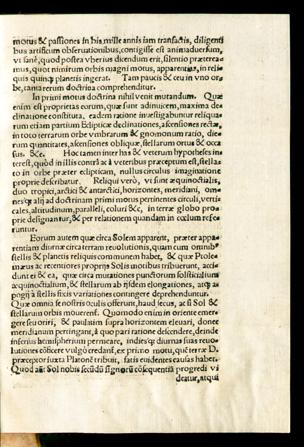 motus & passiones in his mille annis iam transactis, diligenti
bus artificum obseruationibus, contigisse est animaduersum,
vt sanè, quod postea vberius dicendum erit, silentio prætterea-
mus, quot nimirum orbis magni motus, apparentias, in reli-
quis quinqꝫ planetis ingerat. Tam paucis & ceu in vno or-
be, tanta rerum doctrina comprehenditur.
In primi motus doctrina nihil venit mutandum. Quæ
enim est proprietas eorum, quæ sunt adinuicem, maxima de
clinatione constituta, eadem ratione inuestigabuntur reliqua-
rum etiam partium Eclipticæ declinationes, ascensiones rectæ,
in toto terrarum orbe vmbrarum & gnomonum ratio, die-
rum quantitates, ascensiones obliquæ, stellarum ortus & occa
sus. &c. Hoc tamen inter has & veterum hypotheses in
terest, quòd in illis
to in orbe præter eclipticam, nullus circulus imaginatione
proprie describatur. Reliqui verò, vt sunt æquinoctialis,
duo tropici, arctici & antarctici, horizontes, meridiani, om
nesqꝫ alij ad doctrinam primi motus pertinentes circuli, verti-
cales, altitudinum, paralleli, coluri &c, in terræ globo pro-
prie designantur, & per relationem quandam in cœlum refe-
runtur.
Eorum autem quæ circa Solem apparent, præter appa-
rentiam diurnæ circa terram reuolutionis, quam cum omnibꝰ
stellis & planetis reliquis communem habet, & quæ Ptole-
mæus ac recentiores proprijs Solis motibus tribuerunt, acci-
dunt ei & ea, quæ circa mutationes punctorum solsticialium
æquinoctialium, & stellarum ab ijsdem elongationes, atqꝫ
pogij à stellis fixis variationes contingere deprehenduntur.
Quæ omnia se nostris oculis offerunt, haud secus, ac si Sol &
stellarum orbis mouerent. Quomodo enim in oriente emer-
gere seu oriri, & paulatim supra horizontem eleuari, donec
meridianum pertingant, à quo pari ratione descendere, deinde
inferius hemisphærium permeare, indiesqꝫ diurnas suas reuo-
lutiones conficere vulgò credant, ex primo motu, quē terræ D.
præceptor iuxta Platonē tribuit, satis euidentes causas habet.
Quod aūt Sol nobis secūdū signorū cōsequentiā progredi vi
deatur, atqui